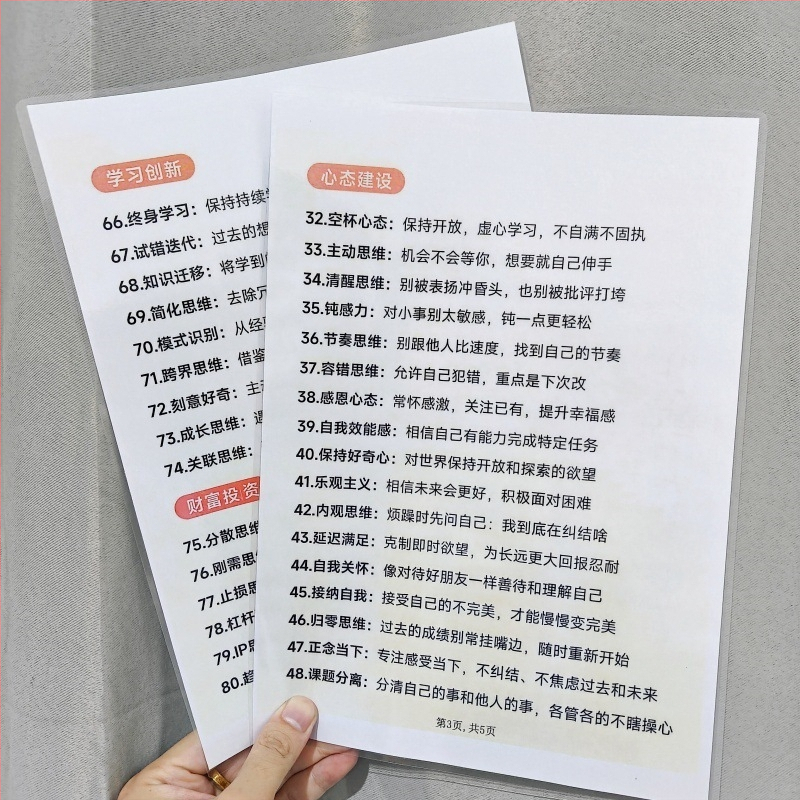 学习创新
66.终身学习：保持持续
67.试错迭代：过去的想
68.知识迁移：将学到
69.简化思维：去除冗
70.模式识别：从经
71.跨界思维：借鉴
72.刻意好奇：主
73.成长思维：
74.关联思维：
财富投资
75.分散思维
76.刚需思
77.止损思
78.杠杆
79.IP思
80.趋
心态建设
32.空杯心态：保持开放，虚心学习，不自满不固执
33.主动思维：机会不会等你，想要就自己伸手
34.清醒思维：别被表扬冲昏头，也别被批评打垮
35.钝感力：对小事别太敏感，钝一点更轻松
36.节奏思维：别跟他人比速度，找到自己的节奏
37.容错思维：允许自己犯错，重点是下次改
38.感恩心态：常怀感激，关注已有，提升幸福感
39.自我效能感：相信自己有能力完成特定任务
40.保持好奇心：对世界保持开放和探索的欲望
41.乐观主义：相信未来会更好，积极面对困难
42.内观思维：烦躁时先问自己：我到底在纠结啥
43.延迟满足：克制即时欲望，为长远更大回报忍耐
44.自我关怀：像对待好朋友一样善待和理解自己
45.接纳自我：接受自己的不完美，才能慢慢变完美
46.归零思维：过去的成绩别常挂嘴边，随时重新开始
47.正念当下：专注感受当下，不纠结、不焦虑过去和未来
48.课题分离：分清自己的事和他人的事，各管各的不瞎操心
第3页,共5页